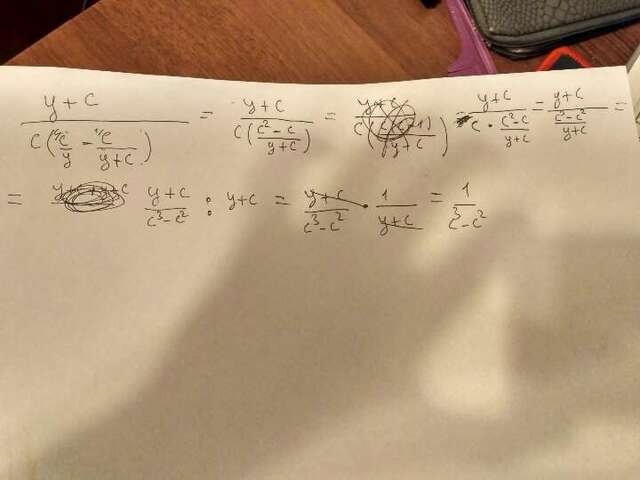 (y+c)/(c(c/y - c/(y+c))) = (y+c)/(c((c²-c)/(y+c))) = = (y+c)/(c · (c²-c)/(y+c)) = (y+c)/((c³-c²)/(y+c)) =
= (y+c)/(c³-c²) : y+c = (y+c)/(c³-c²) · 1/(y+c) = 1/(c³-c²)